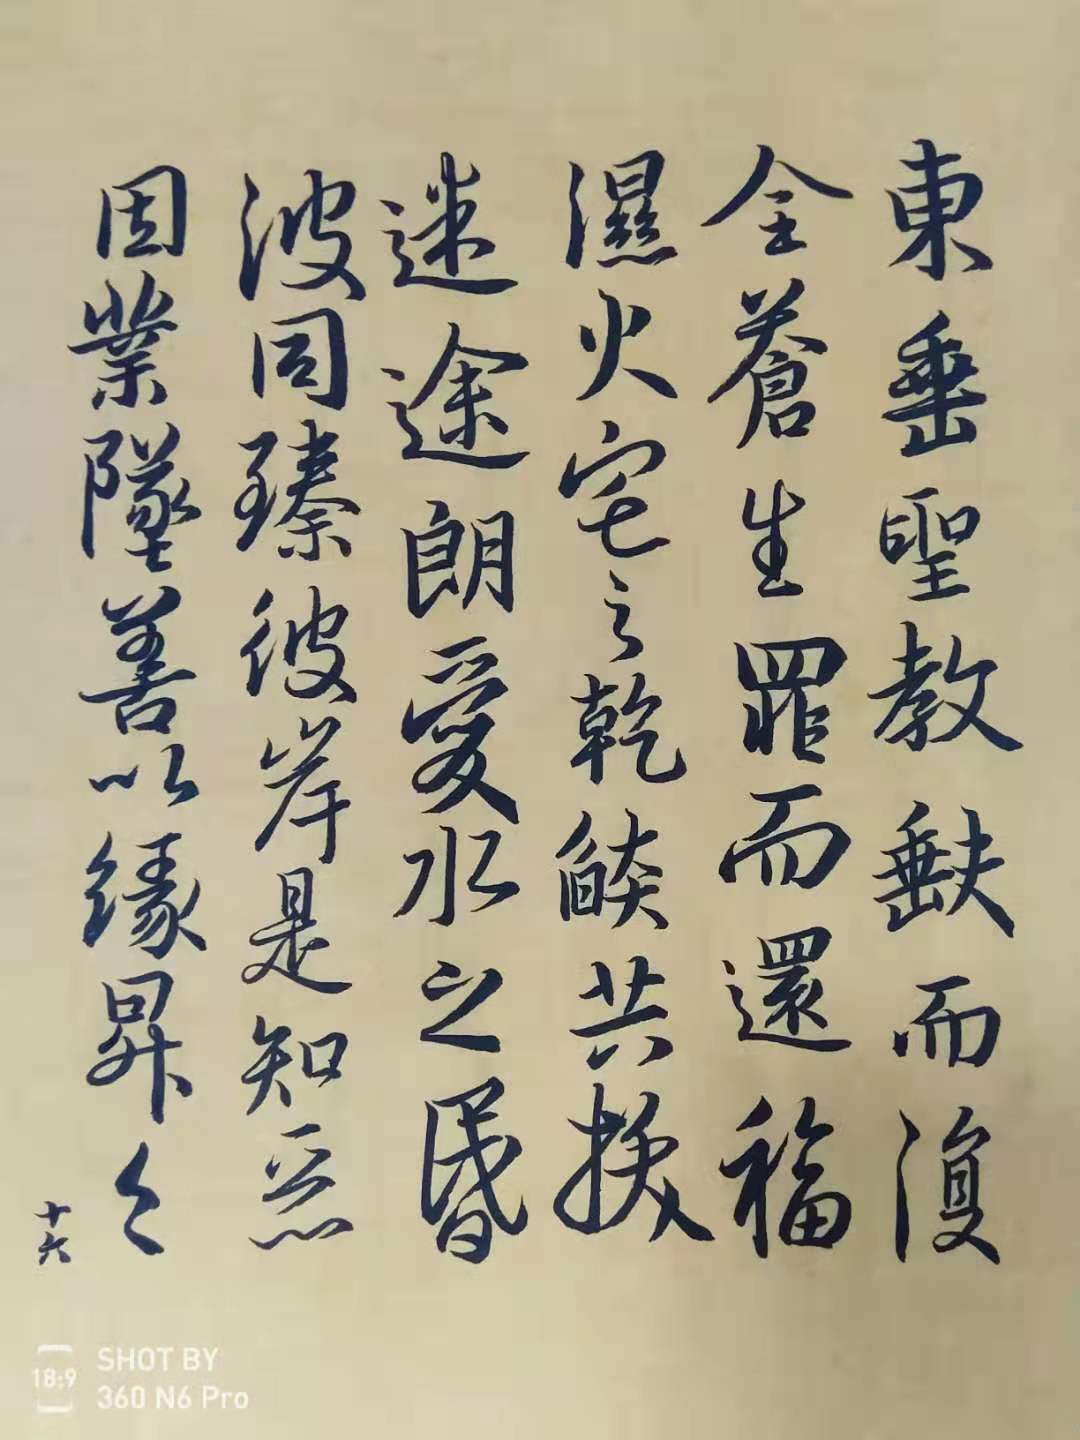 東垂聖教缺而復
全蒼生罪而還福
濕火宅之乾燄共拔
迷途朗愛水之昏
波同臻彼岸是知惡
因業墜善以緣昇々
十六
SHOT BY
18:9
360 N6 Pro